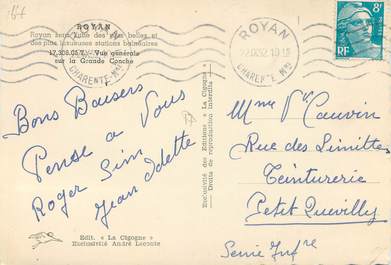 ROYAN
Royan sera l'une des plus belles et
des plus luxueuses stations balnéaires
17,306,05 Z. - Vue générale
sur la Grande Conche
ROYAN
CHARENTE Mme
Bons Baisers
Pense a Vous
Roger Sim
Jean Odette
Edit. "La Cigogne"
Exclusivité André Leconte
Exclusivité des Editions "La Cigogne"
- Droits de reproduction interdits -
ROYAN
CHARENTE Mme
8F
RF
Mme Vve Cauvin
Rue des
Teinturerie
Petit Quevilly
Seine Infre